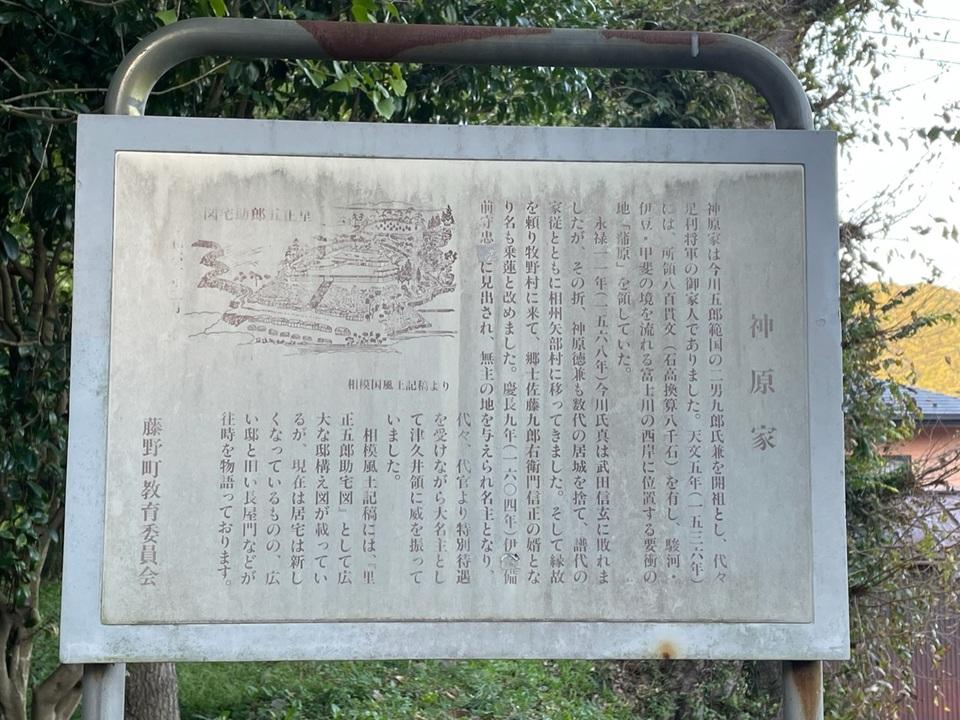 神原家
神原家は今川五郎範国の二男九郎氏兼を開祖とし、代々
足利将軍の御家人でありました。天文五年(一五三六年)
には、所領八百貫文(石高換算八千石)を有し、駿河・
伊豆・甲斐の境を流れる富士川の西岸に位置する要衝の
地「蒲原」を領していた。
永禄一一年(一五六八年)今川氏真は武田信玄に敗れま
したが、その折、神原徳兼も数代の居城を捨て、譜代の
家従とともに相州矢部村に移ってきました。そして縁故
を頼り牧野村に来て、郷士佐藤九郎右衛門信正の婿とな
り名も乗蓮と改めました。慶長九年(一六〇四年)伊奈備
前守忠に見出され、無主の地を与えられ名主となり、
代々、代官より特別待遇
を受けながら大名主とし
て津久井領に威を振って
いました。
相模風土記稿には、『里
正五郎助宅図』として広
大な邸構え図が載ってい
るが、現在は居宅は新し
くなっているものの、広
い邸と旧い長屋門などが
往時を物語っております。
藤野町教育委員会
里正五郎助宅図
相模国風土記稿より